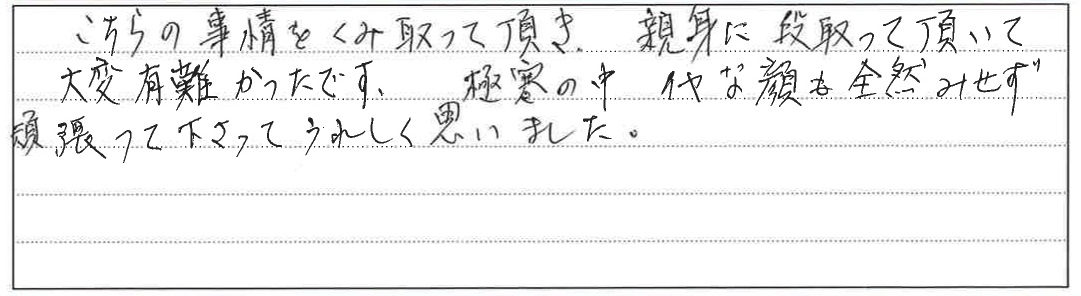 こちらの事情をくみ取って頂き、親身に段取って頂いて
大変有難かったです、極寒の中イヤな顔も全然みせず
頑張って下さってうれしく思いました。